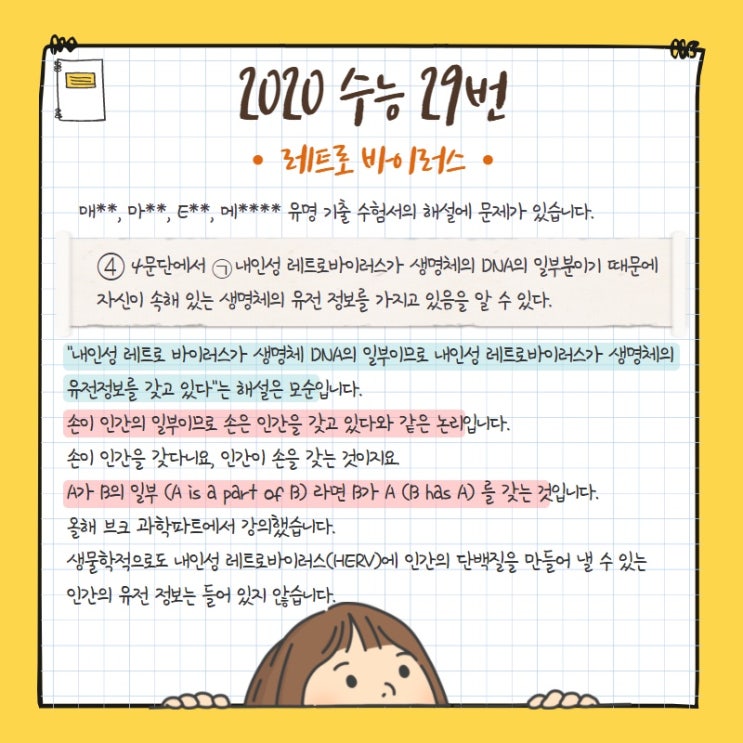 2020 수능 29번
• 레트로 바이러스 •
매**, 마**, E**, 메**** 유명 기출 수험서의 해설에 문제가 있습니다.
④ 4문단에서 ㉠ 내인성 레트로바이러스가 생명체의 DNA의 일부분이기 때문에
자신이 속해 있는 생명체의 유전 정보를 가지고 있음을 알 수 있다.
"내인성 레트로 바이러스가 생명체 DNA의 일부이므로 내인성 레트로바이러스가 생명체의
유전정보를 갖고 있다"는 해설은 모순입니다.
손이 인간의 일부이므로 손은 인간을 갖고 있다와 같은 논리입니다.
손이 인간을 갖다니요, 인간이 손을 갖는 것이지요
A가 B의 일부 (A is a part of B) 라면 B가 A (B has A) 를 갖는 것입니다.
올해 브크 과학파트에서 강의했습니다.
생물학적으로도 내인성 레트로바이러스(HERV)에 인간의 단백질을 만들어 낼 수 있는
인간의 유전 정보는 들어 있지 않습니다.